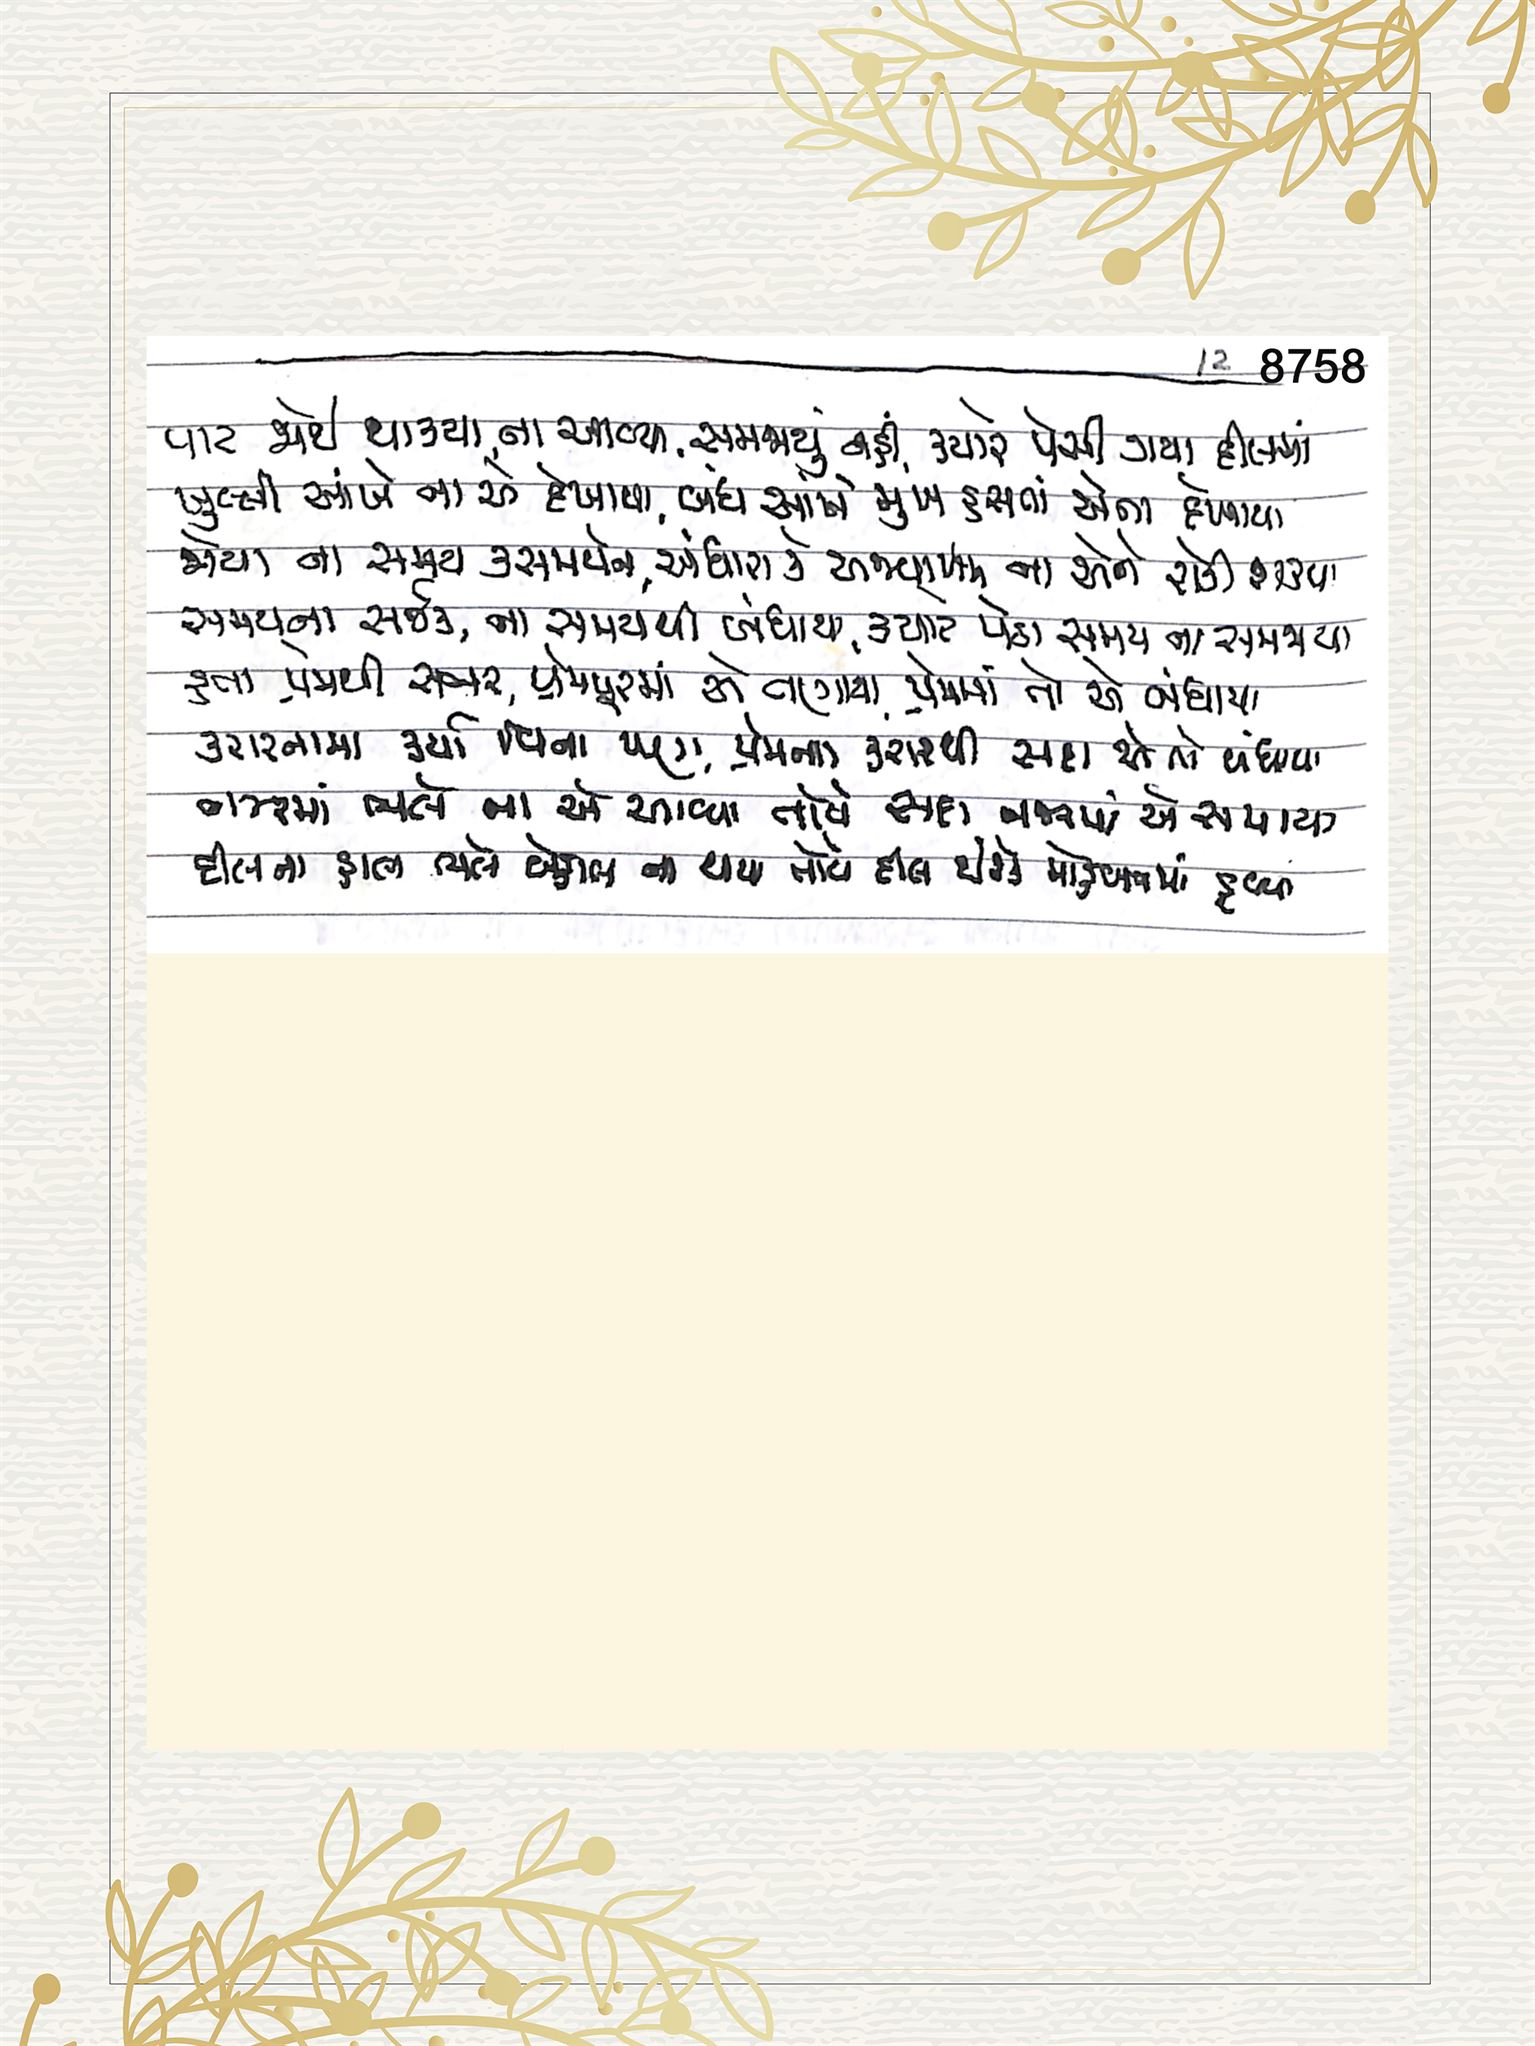 12 8758
વાટ જોઈ થાક્યા, ના આવ્યા, સમજાયું નહીં, ક્યારે પેસી ગયા દીલમાં
ખુલ્લી આંખે ના એ દેખાયા, બંધ આંખે મુખ હસતાં એના દેખાયા
જોયા ના સમય કસમયેન, અંધારા કે અજવાળા ના એને રોકી શક્યા
સમયના સર્જક, ના સમયથી બંધાયા, ક્યારે પેઠા સમય ના સમજાયા
હતા પ્રેમથી સભર, પ્રેમપૂરમાં એ તણાયા, પ્રેમમાં તો એ બંધાયા
કરારનામા કર્યા વિના પણ, પ્રેમના કરારથી સદા એ તો બંધાયા
નજરમાં ભલે ના એ આવ્યા તોયે સદા નજરમાં એ સમાયા
દીલના હાલ ભલે બેહાલ ના થાય તોયે દીલ એને મોહબ્બતમાં